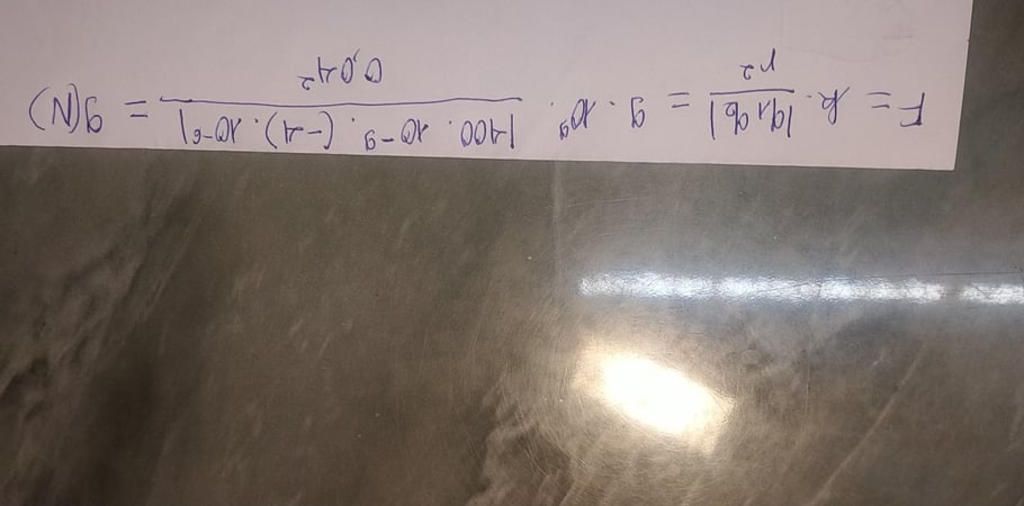 F = k · |q₁q₂| / r² = 9 · 10⁹ · |100 · 10⁻⁹ · (-1) · 10⁻⁶| / 0,01² = 9(N)